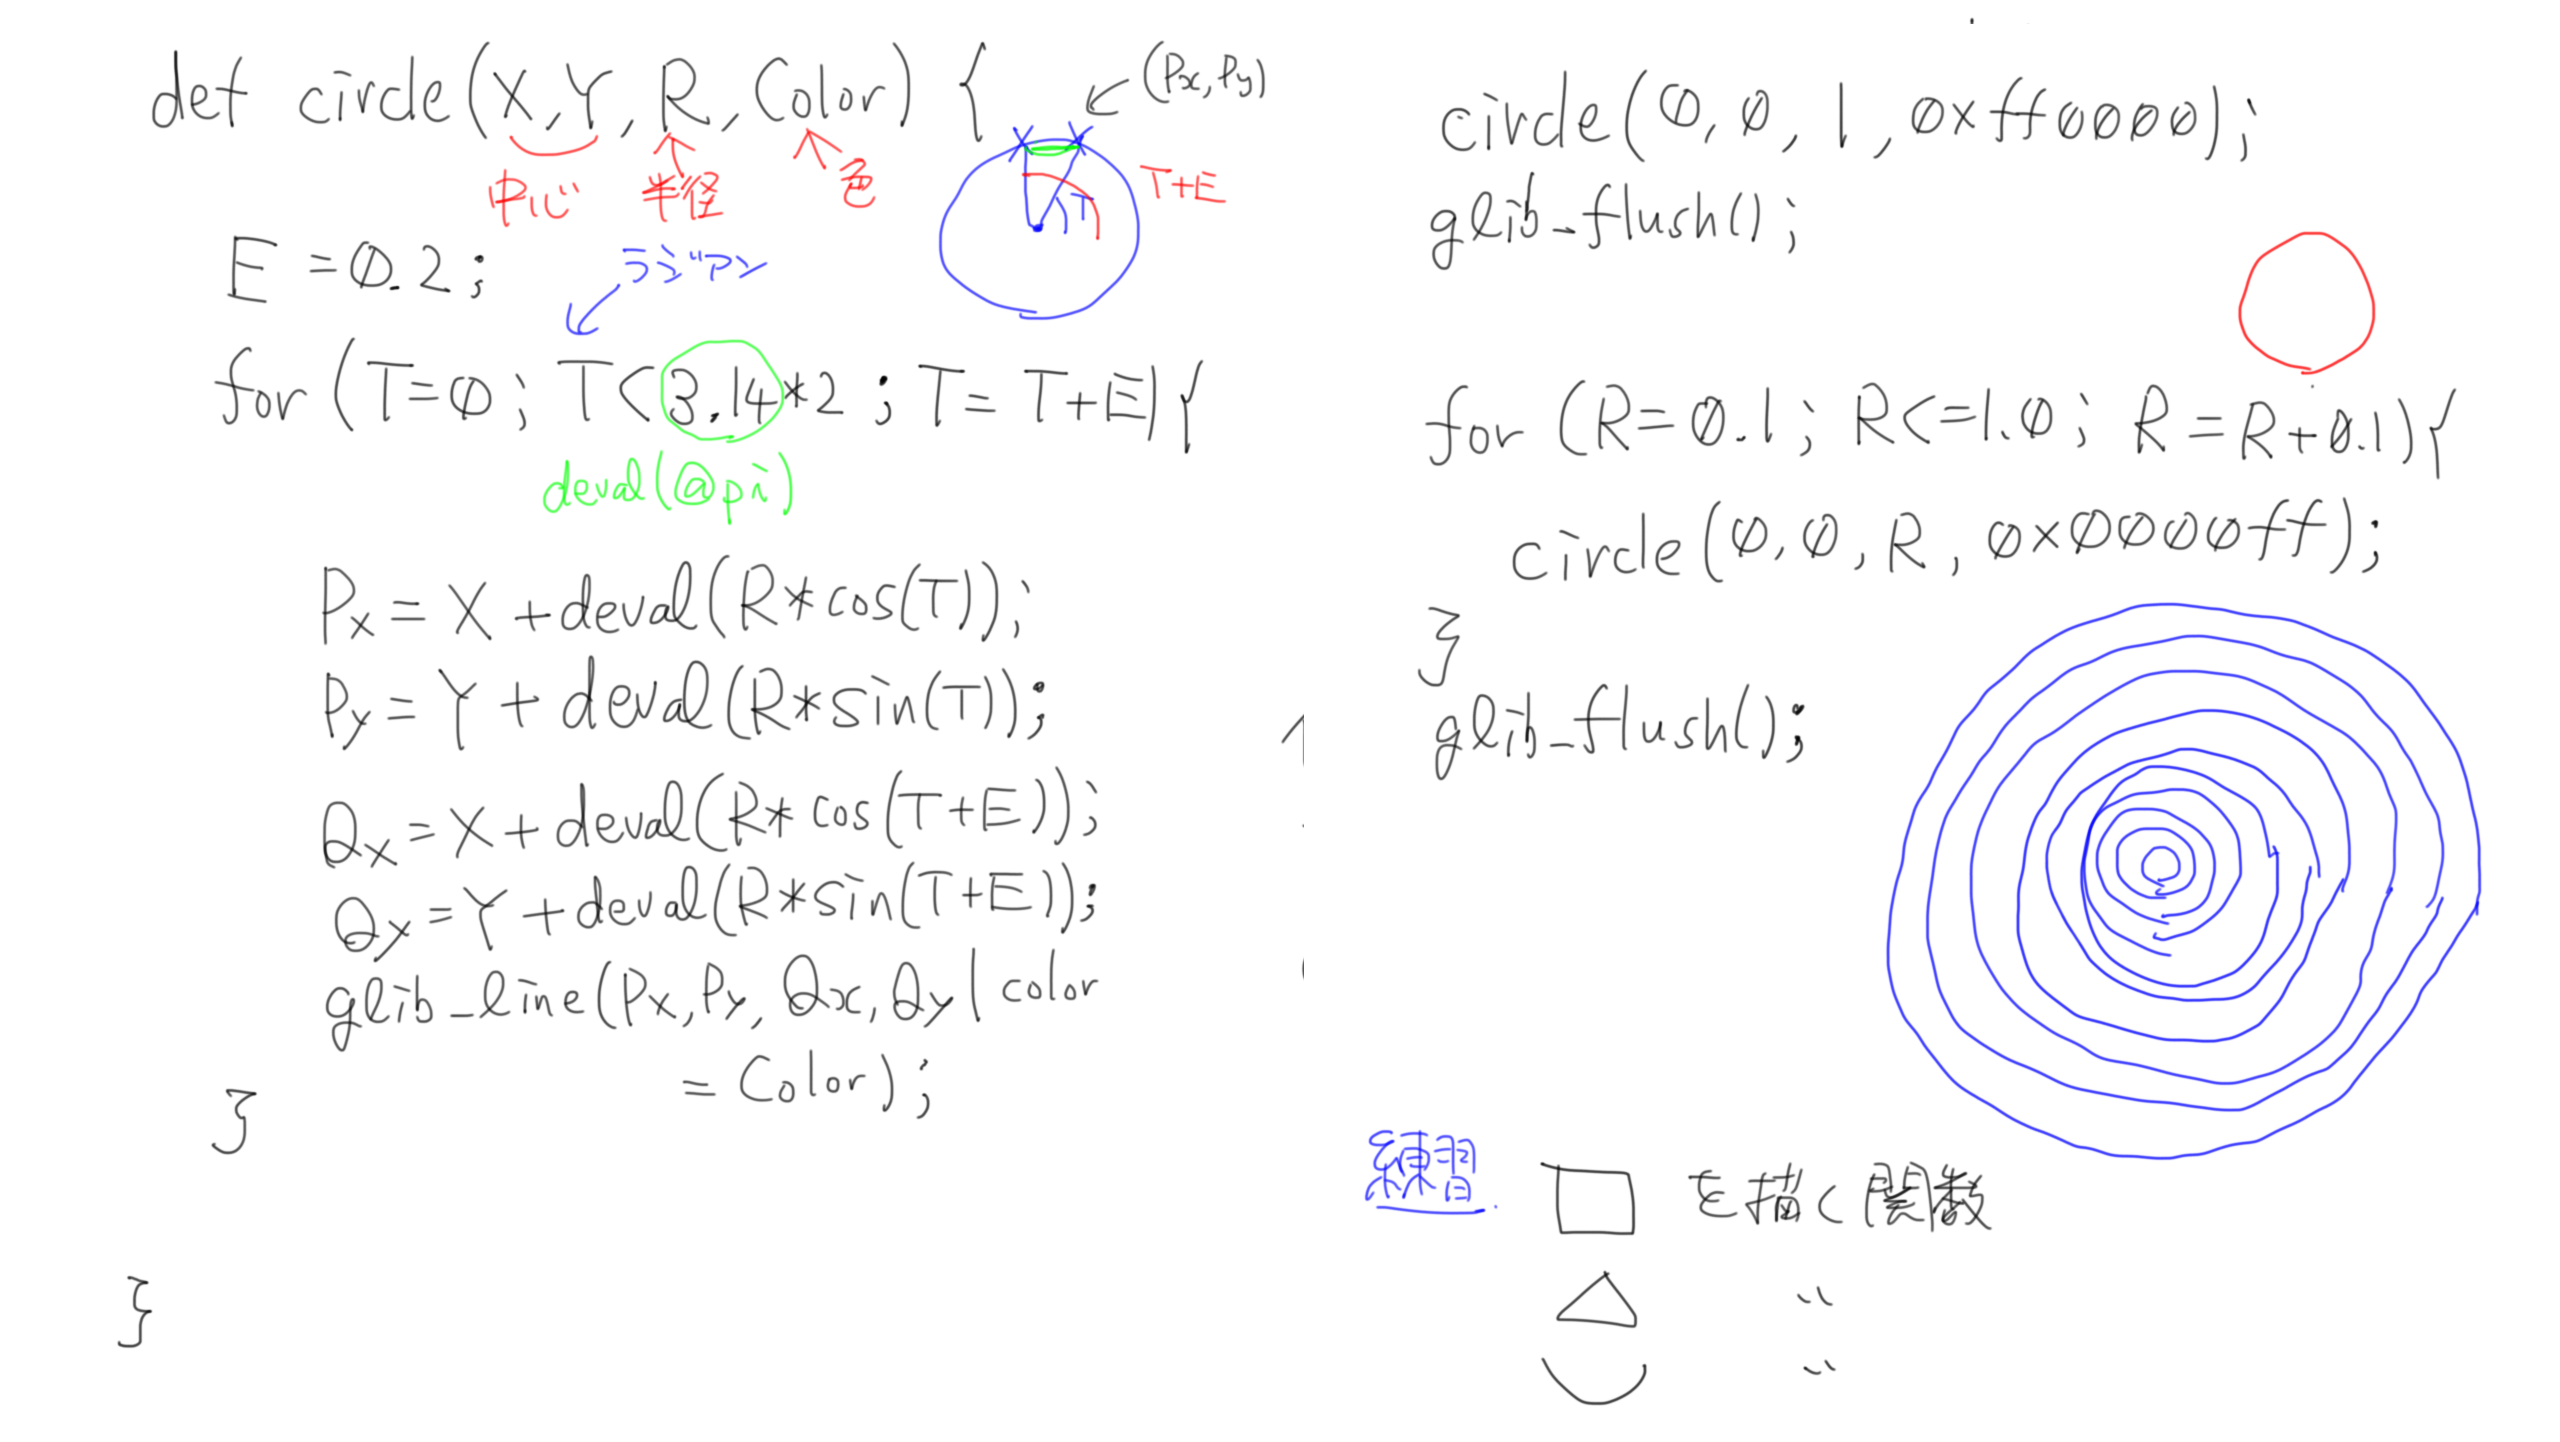 def circle(X,Y,R,Color) {
(Px,Py)
中心
半径
色
T
T+E
E=0.2;
ラジアン
for(T=0;T<3.14*2;T=T+E){
deval(@pi)
Px=X+deval(R*cos(T));
Py=Y+deval(R*sin(T));
Qx=X+deval(R*cos(T+E));
Qy=Y+deval(R*sin(T+E));
glib_line(Px,Py,Qx,Qy|color
=Color);
}
}
circle(0,0,1,0xff0000);
glib_flush();
for(R=0.1;R<=1.0;R=R+0.1){
circle(0,0,R,0x0000ff);
}
glib_flush();
練習.
□ を描く関数
△ 〃
〃